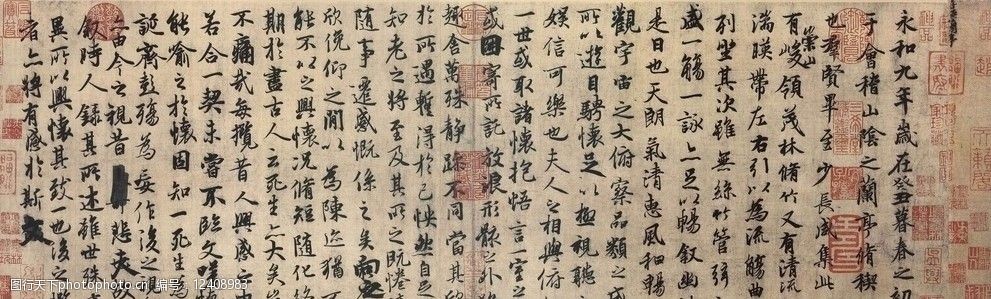 永和九年歲在癸丑暮春之初
于會稽山陰之蘭亭脩稧
也羣賢畢至少長咸集此
有崇山峻領茂林脩竹又有清流
湍暎帶左右引以為流觴曲
列坐其次雖無絲竹管弦
盛一觴一詠亦足以暢敘幽
是日也天朗氣清惠風和暢
觀宇宙之大俯察品類之
所以遊目騁懷足以極視聽
娛信可樂也夫人之相與俯
一世或取諸懷抱悟言一室之
或因寄所託放浪形骸之外
趣舍萬殊靜躁不同當其欣
於所遇蹔得於己怏然自足
知老之將至及其所之既惓
隨事遷感慨係之矣向
欣俛仰之閒以為陳迹猶不
能不以之興懷況脩短隨化
期於盡古人云死生亦大矣
不痛哉每攬昔人興感之
若合一契未嘗不臨文嗟
能喻之於懷固知一死生為
誕齊彭殤為妄作後之
亦由今之視昔悲夫故
敘時人錄其所述雖世殊
異所以興懷其致一也後之
者亦將有感於斯文
图行天下 photophoto.cn 编号：12408983